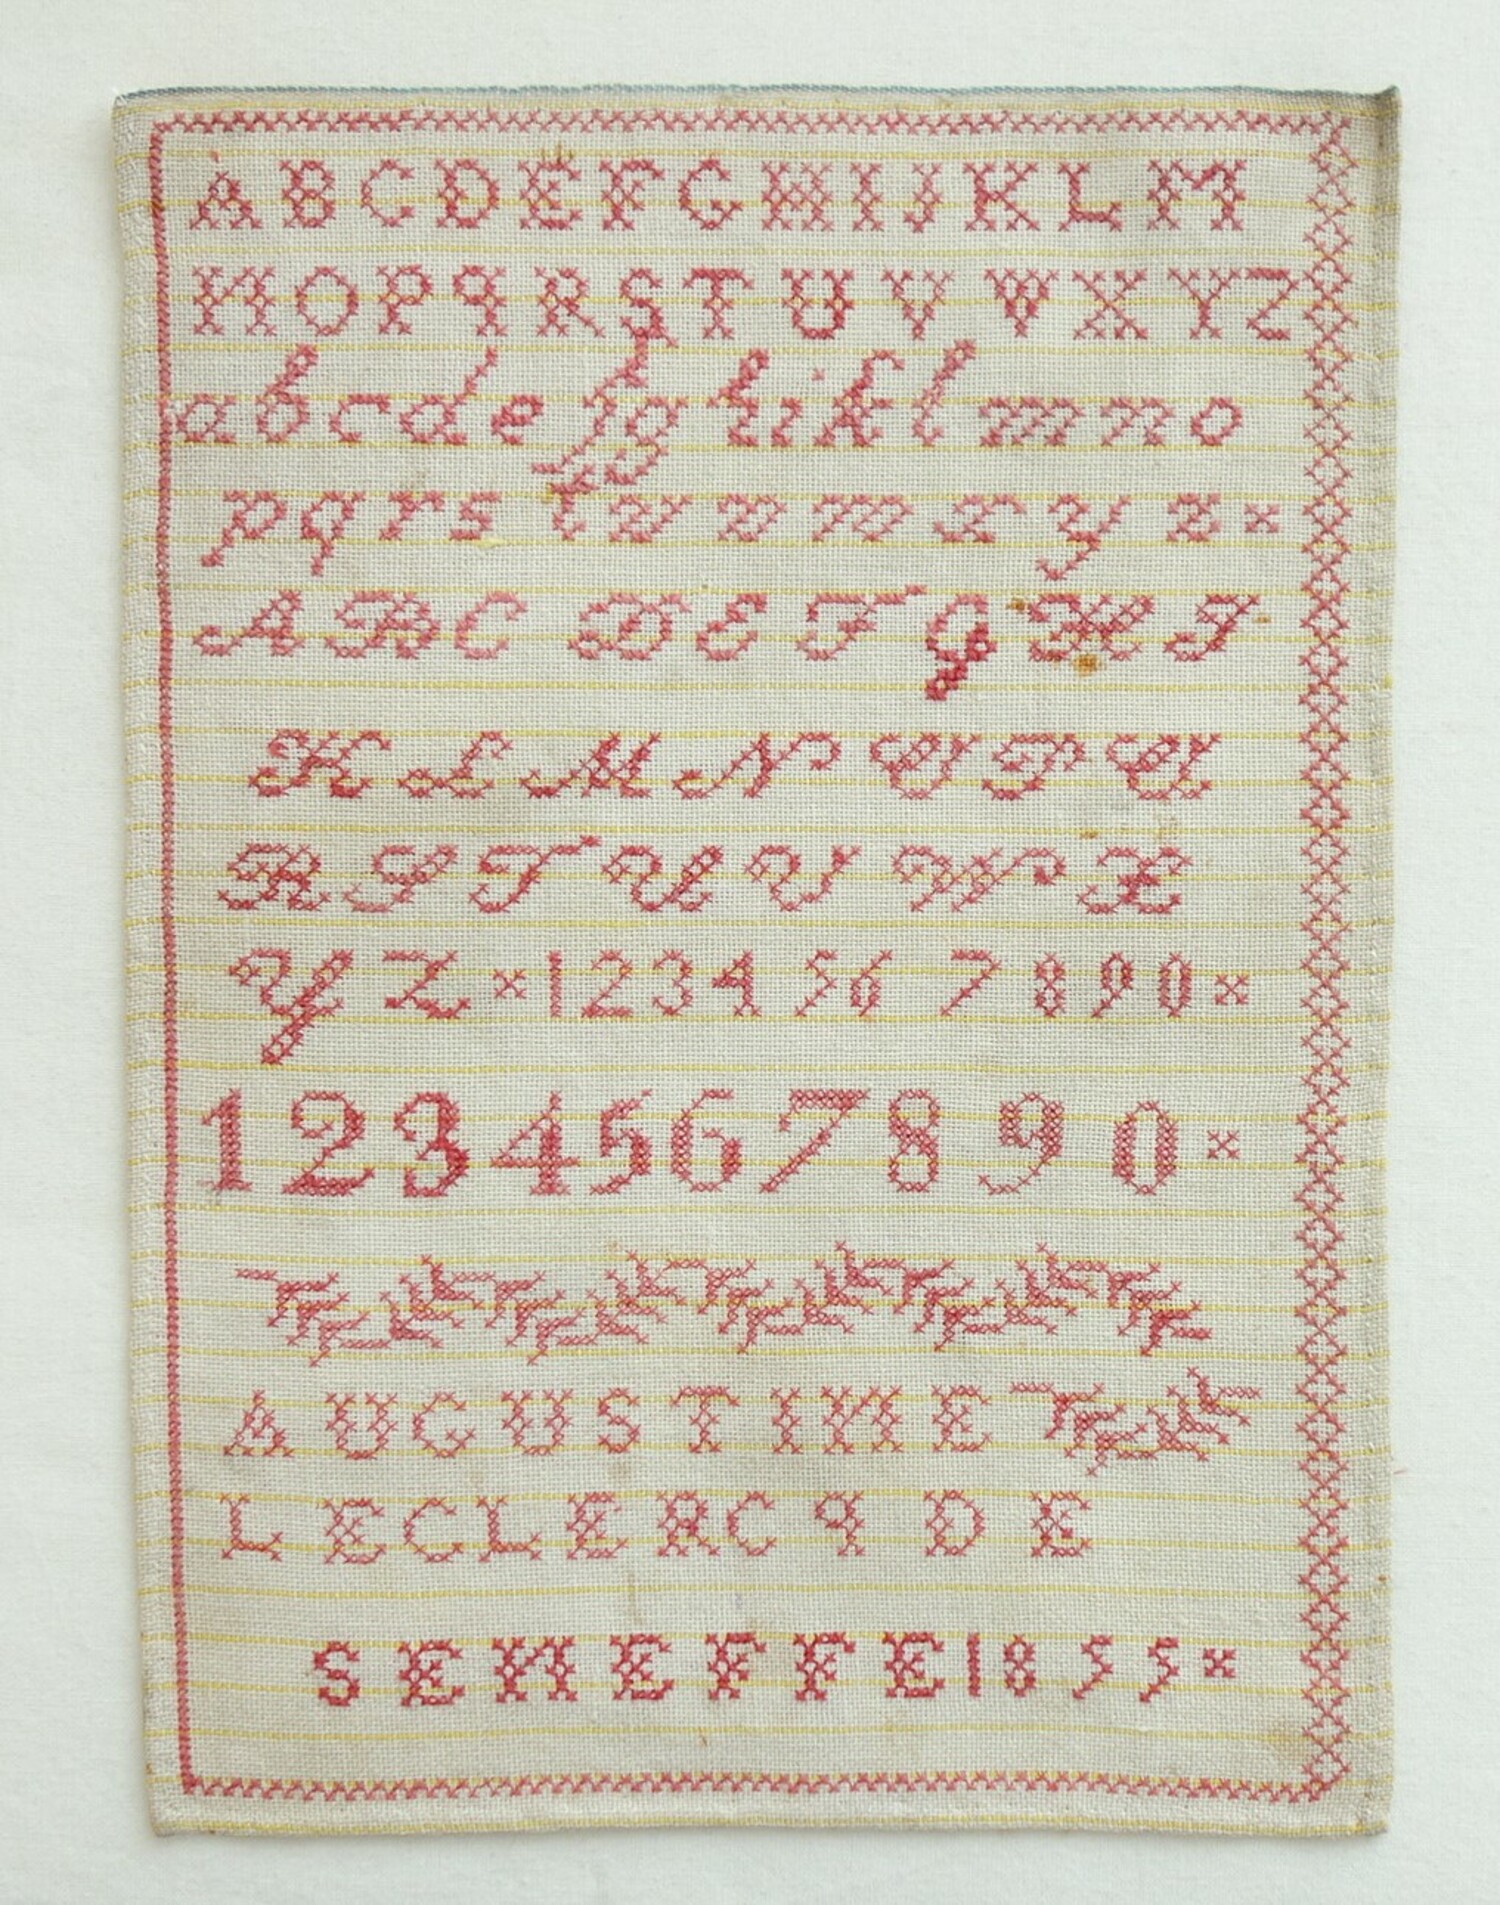 A B C D E F G H I J K L M
N O P q R S T U V W X Y Z
a b c d e f g h i k l m n o
p q r s t u v w x y z ×
A B C D E F G H I
K L M N O P Q
R S T U V W X
Y Z × 1 2 3 4 5 6 7 8 9 0 ×
1 2 3 4 5 6 7 8 9 0 ×
AUGUSTINE
LECLERCq DE
SENEFFE 1855 ×